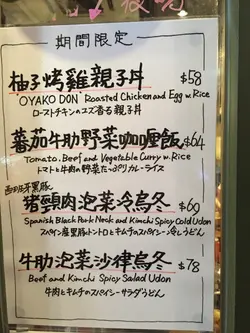 期間限定
柚子烤雞親子丼 $58
"OYAKO DON" Roasted Chicken and Egg w. Rice
ローストチキンのユズ香る親子丼
蕃茄牛肋野菜咖喱飯 $64
Tomato, Beef and Vegetable Curry w. Rice
トマトと牛肉の野菜たっぷりカレーライス
西班牙黑豚
猪頸肉泡菜冷烏冬 $60
Spanish Black Pork Neck and Kimchi Spicy Cold Udon
スペイン産黒豚トントロとキムチのスパイシー冷しうどん
牛肋泡菜沙律烏冬 $78
Beef and Kimchi Spicy Salad Udon
牛肉とキムチのスパイシーサラダうどん